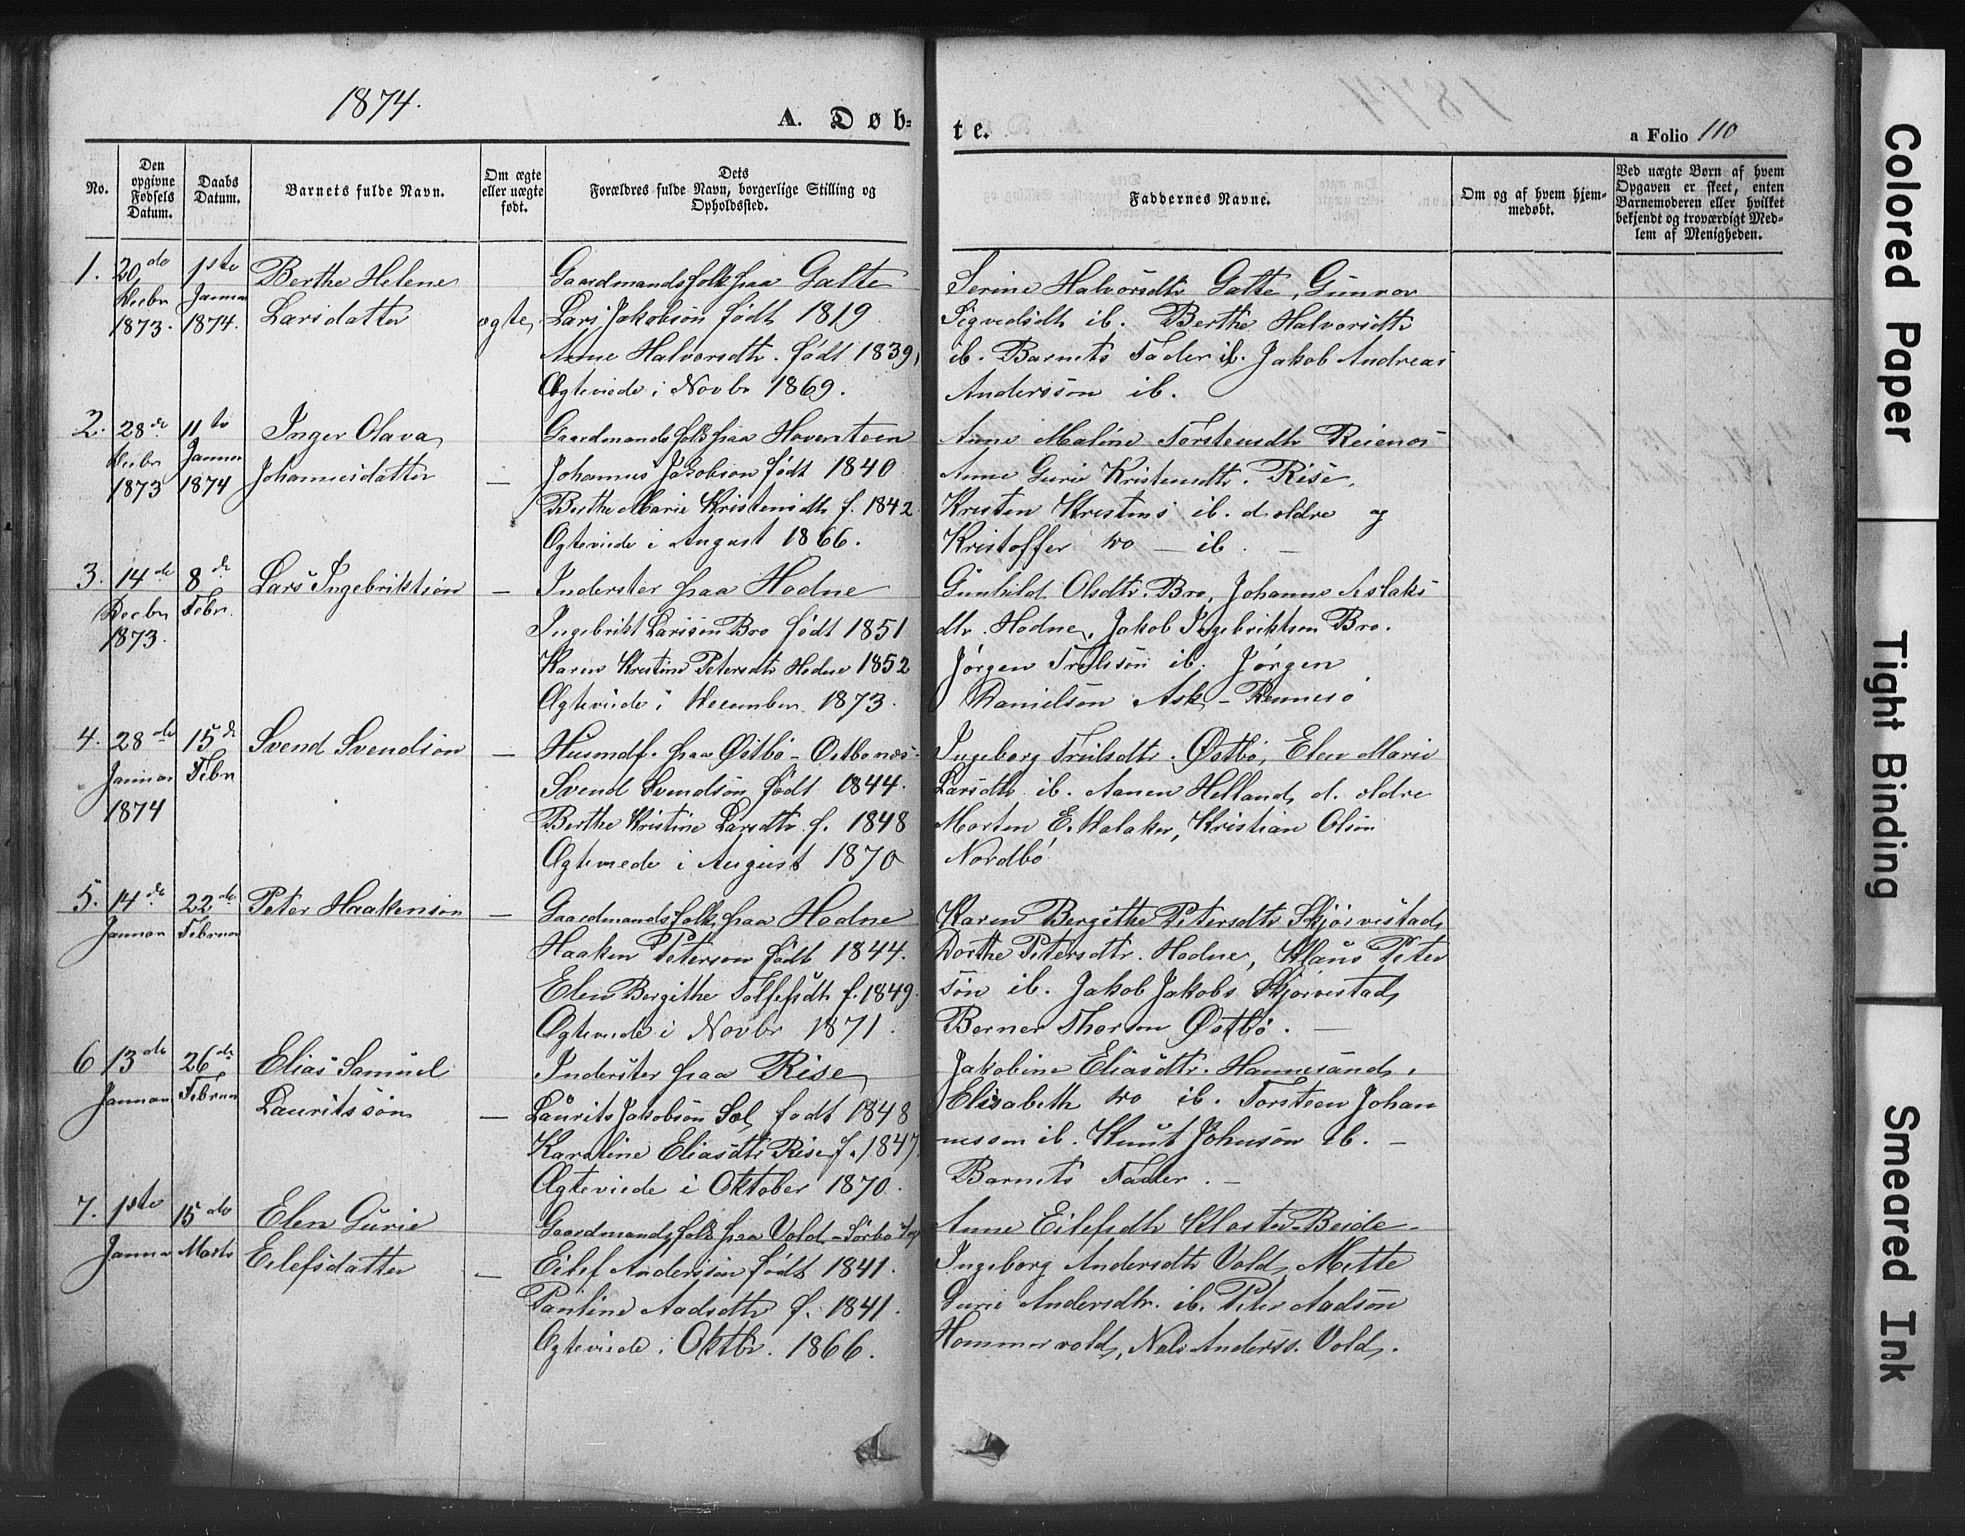 1874.
A. Døb=
te.
a Folio 110
No.
Den opgivne Fødsels Datum.
Daabs Datum.
Barnets fulde Navn.
Om ægte eller uægte født.
Dets Forældres fulde Navn, borgerlige Stilling og Opholdssted.
Faddernes Navne.
Om og af hvem hjem-
medøbt.
Ved uægte Børn af hvem
Opgaven er skeet, enten
Barnemoderen eller hvilket
bekjendt og troværdigt Med-
lem af Menigheden.
1. 20de Decbr 1873. 1ste Januar 1874.
Berthe Helene
Larsdatter
ægte
Gaardmandsfolk fra Galte
Lars Jakobsön född 1819
Anne Halvorsdtr. född 1839,
Ægteviede i Novbr 1869.
Serine Halvorsdtr Galte, Gunvor
Sigvedsdtr ib. Berthe Halvorsdtr
ib. Barnets Fader ib. Jakob Andreas
Andersson ib.
2. 28de Decbr 1873 11te Januar 1874
Inger Olava
Johannesdatter
—
Gaardmandsfolk fraa Hovensteen
Johannes Jakobson født 1840
Berthe Marie Kristensdtr f. 1842
Ægteviede i August 1866.
Anne Maline Torstensdtr Reienes
Anne Gurie Kristensdtr. Rise.
Kristen Kristens ib. d. ældre og
Kristoffer do — ib. —
3. 14de Decbr 1873. 8de Febr.
Lars Ingebriktsön
—
Inderster fraa Hodne
Ingebrikt Larsson Bro født 1851
Karen Kristine Petersdtr Hodne 1852
Ægteviede i December 1873.
Gunhild Olsdtr. Bro, Johanne Aslaks
dtr. Hodne, Jakob Ingebriktsen Bro.
Jørgen Trulsson ib. Jørgen
Danielsön Ask – Rennesö
4. 28de Januar 1874 15de Febr
Svend Svendsön
—
Husmdf. fraa Østbö – Ostbones
Svend Svendsön født 1844.
Berthe Kristine Larsdtr. f. 1848
Ægteviede i August 1870
Ingeborg Trulsdtr. Østbö, Elen Marie
Larsdtr ib. Aanen Helland d. ældre
Morten E. Walaker, Kristian Olsön
Nordbö
5. 14de Januar 22de Februar
Peter Haakensön
—
Gaardmandsfolk fraa Hodne
Haaken Peterson født 1844.
Elen Bergithe Tollefsdtr f. 1849.
Ægteviede i Novbr 1871.
Karen Bergithe Petersdtr Skjørvestad
Dorthe Petersdtr. Hodne, Klaus Peter
sön ib. Jakob Jakobs Skjørvestad,
Berner Thorson Østbö. —
6 13de Januar 26de Februar
Elias Samuel
Lauritssön
—
Inderster fraa Rise
Laurits Jakobsön Sæl født 1848
Karoline Eliasdtr Rise f. 1847.
Ægteviede i Oktober 1870.
Jakobine Eliasdtr. Hannesand,
Elisabeth do ib. Torsteen Johan
nesson ib. Knut Johnsön ib. –
Barnets Fader. –
7. 1ste Januar 15de Marts
Elen Gurie
Eilefsdatter
—
Gaardmandsfolk fraa Vold – Sörbö
Eilef Andersson født 1841.
Pauline Aadsdtr f. 1841.
Ægteviede i Oktbr. 1866.
Anne Eilefsdtr Kloster
Ingeborg Andersdtr Vold, Mette
Gurie Andersdtr. ib. Peter Aadsön
Hommervold, Nils Anderss. Vold.
Colored Paper
Tight Binding
Smeared Ink